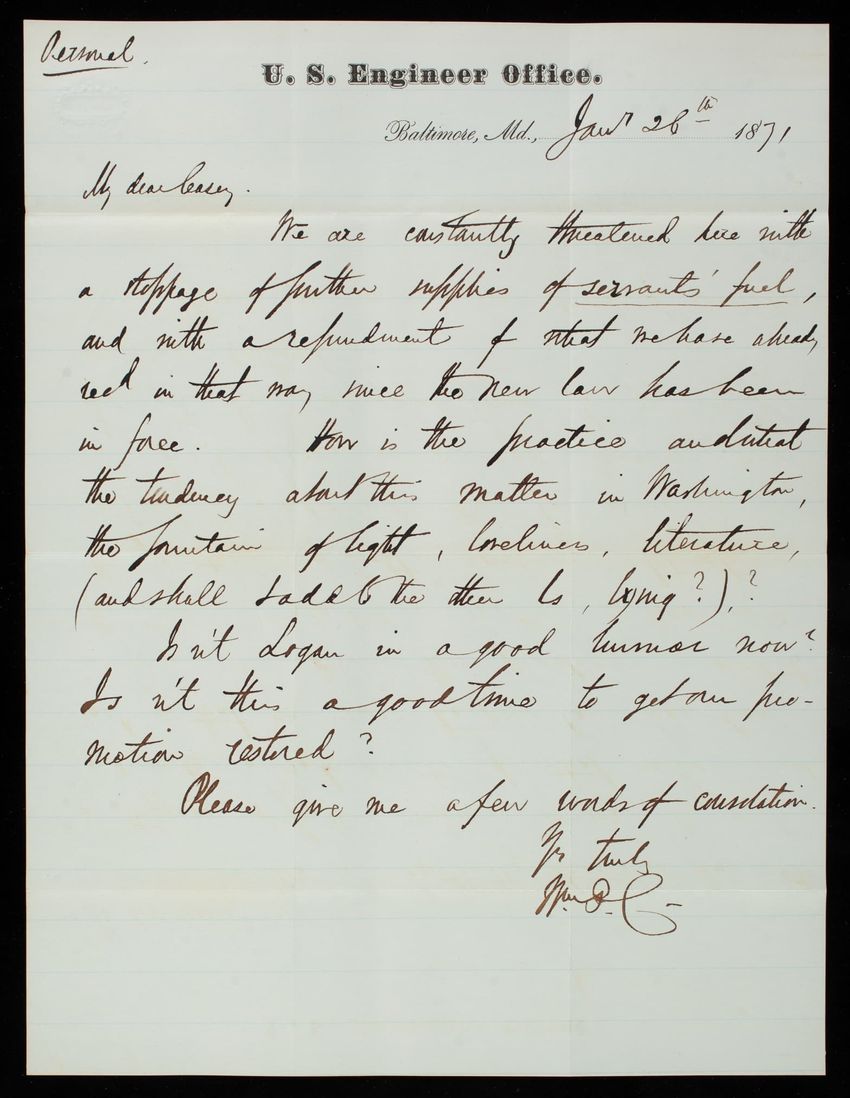 Personal.
U. S. Engineer Office.
Baltimore, Md., Jany 26th 1871
My dear Casey.
We are constantly threatened here with
a stoppage of further supplies of servants' fuel,
and with a refundment of what we have already
recd in that way since the new law has been
in force. How is the practice and what
the tendency about this matter in Washington,
the fountain of light, loveliness, literature,
(and shall I add to the other ls, lying?),?
Is n't Logan in a good humor now?
Is n't this a good time to get our pro-
motion restored?
Please give me a few words of consolation.
Yrs truly
Wm. P. C